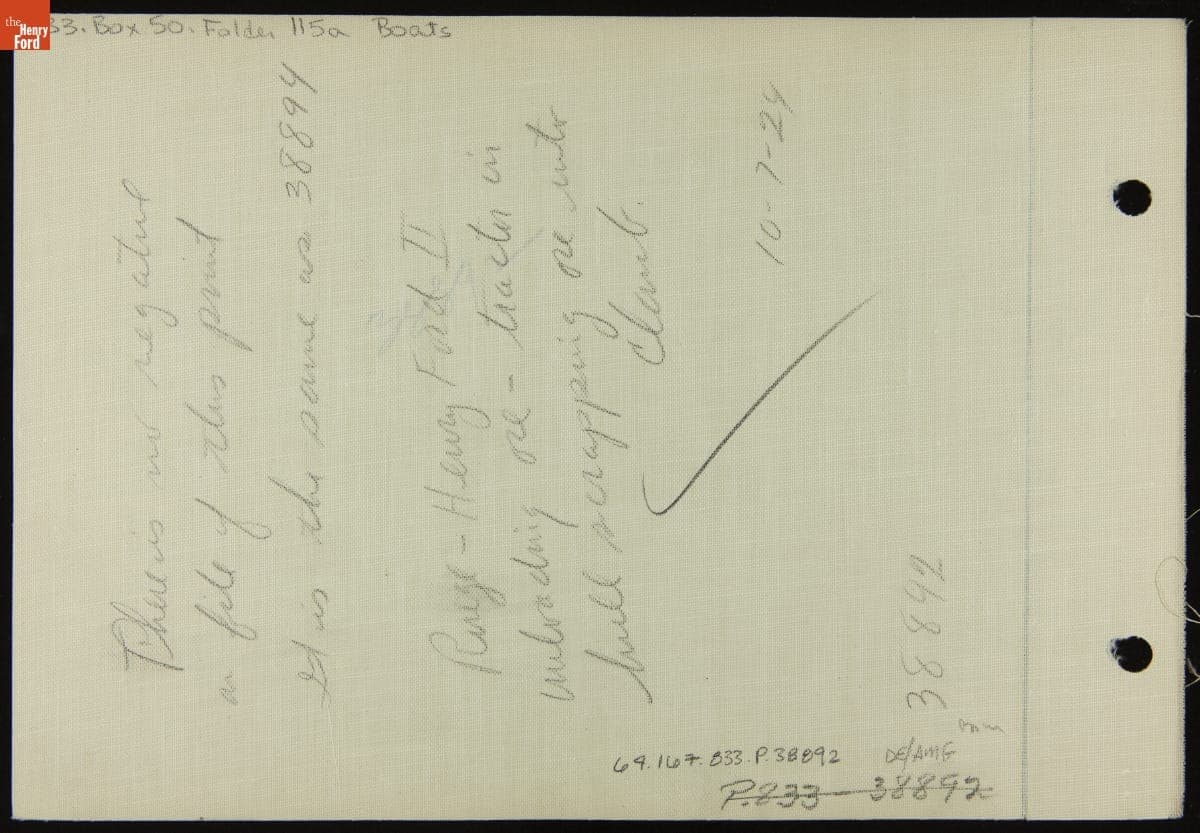 the
Henry
Ford
33. Box 50. Folder 115a Boats
There is no negative
on file of this print
It is the same as 38894
Rouge - Henry Ford II
unloading ore - tractor in
hull scrapping ore into
Clamb.
10-7-24
38892
64.167.833.P.38892
DE/AMG
P.833 - 38892